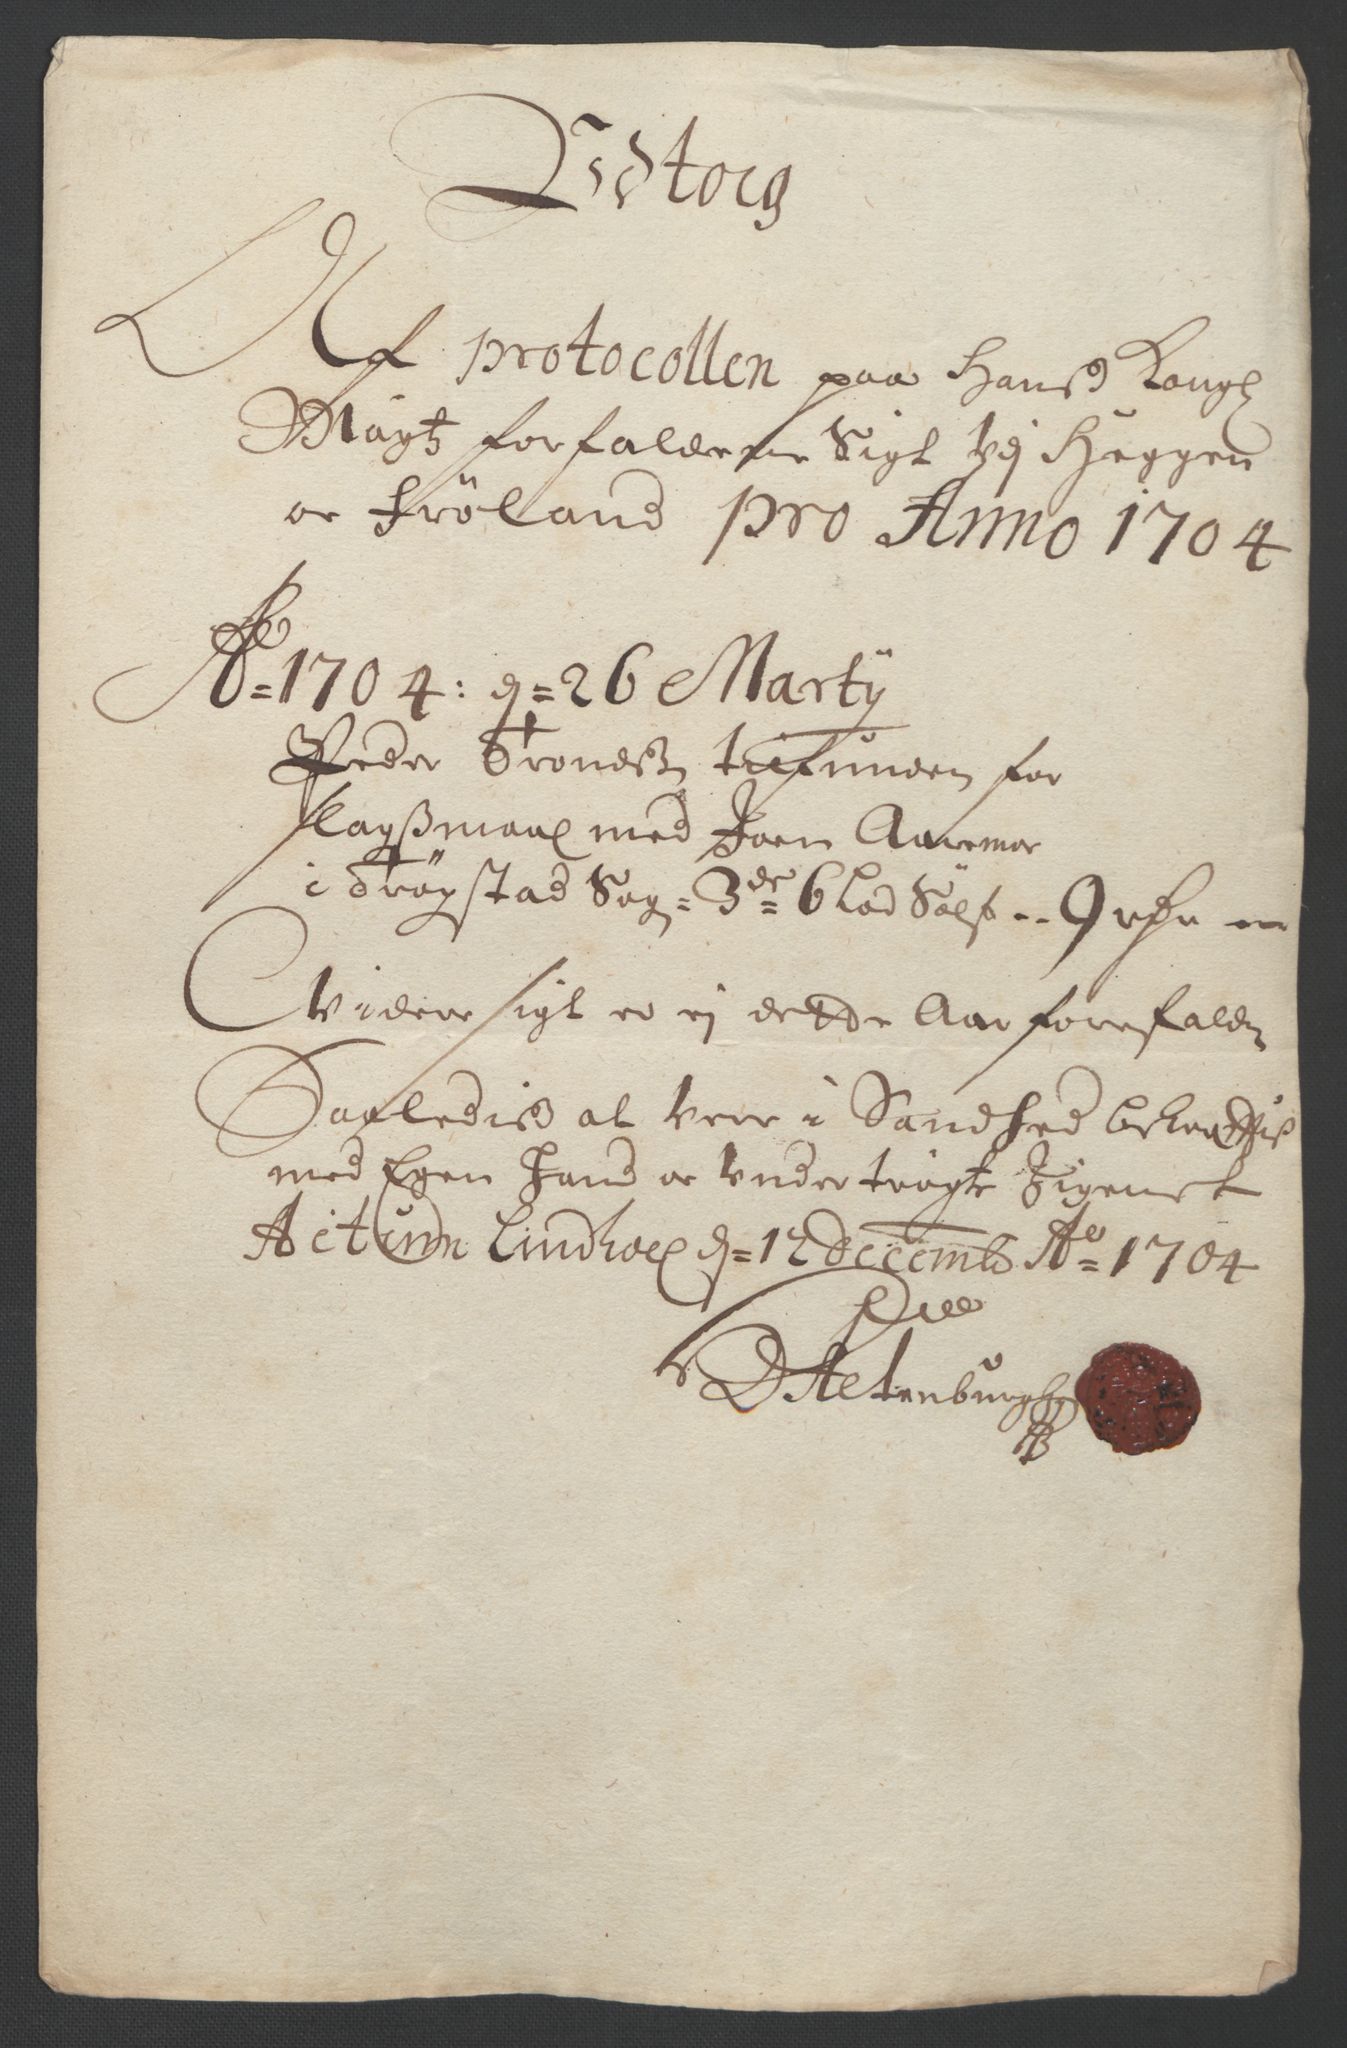 Udtog
Af protocollen paa Hanß Kongl
Maytz forfaldene Sigt udj Heggen
oc Fröland pro Anno 1704
Ao = 1704: d = 26 Martÿ
Peder Trondß: tilfunden for
slagßmaal med Joen Aaremoe
i Trögstad Sogn = 3de = 6 Lod Sölf -- 9 rdr
Videre sigt er ej dette Aar forefalden
Saaledis at vere i Sandhed bekreftiß
med Egen Haand oc vndertrögte Zignet
Actum Lindhoel d = 12 decemb Ao = 1704
Altenburgh